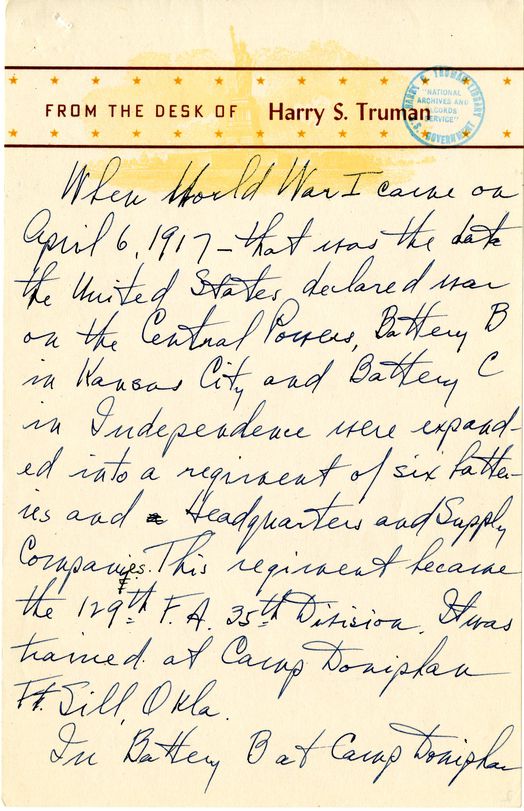 FROM THE DESK OF Harry S. Truman
HARRY S. TRUMAN LIBRARY
"NATIONAL
ARCHIVES AND
RECORDS
SERVICE"
U.S. GOVERNMENT
When World War I came on
April 6, 1917 – that was the date
the United States declared war
on the Central Powers, Battery B
in Kansas City and Battery C
in Independence were expand-
ed into a regiment of six batter-
ies and a Headquarters and Supply
Companies. This regiment became
the 129th F. A. 35th Division. It was
trained at Camp Doniphan
Ft. Sill, Okla.
In Battery B at Camp Doniphan